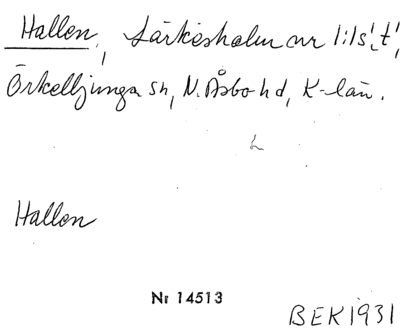 Hallen, Lärkesholm nr 1:1 s! t!,
Örkelljunga sn, N. Åsbo hd, K-län.
Hallen
Nr 14513
BEK 1931